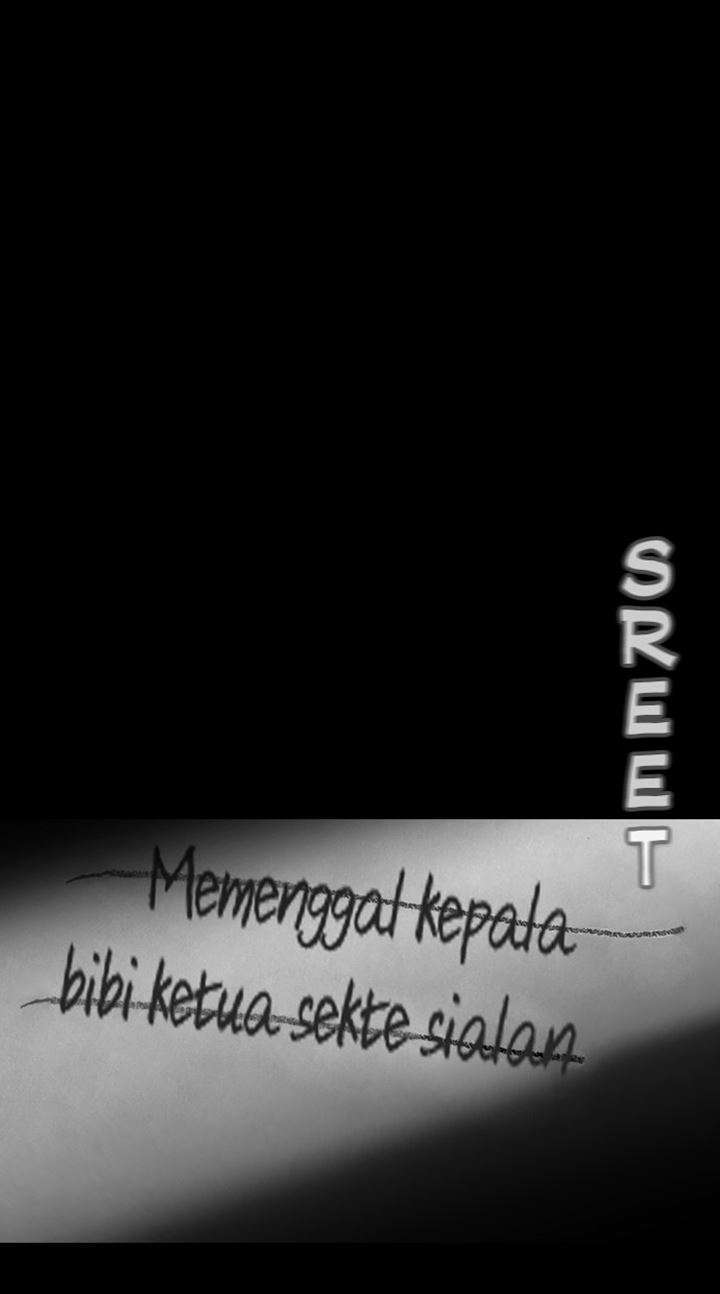 SREET
Memenggal kepala
bibi ketua sekte sialan